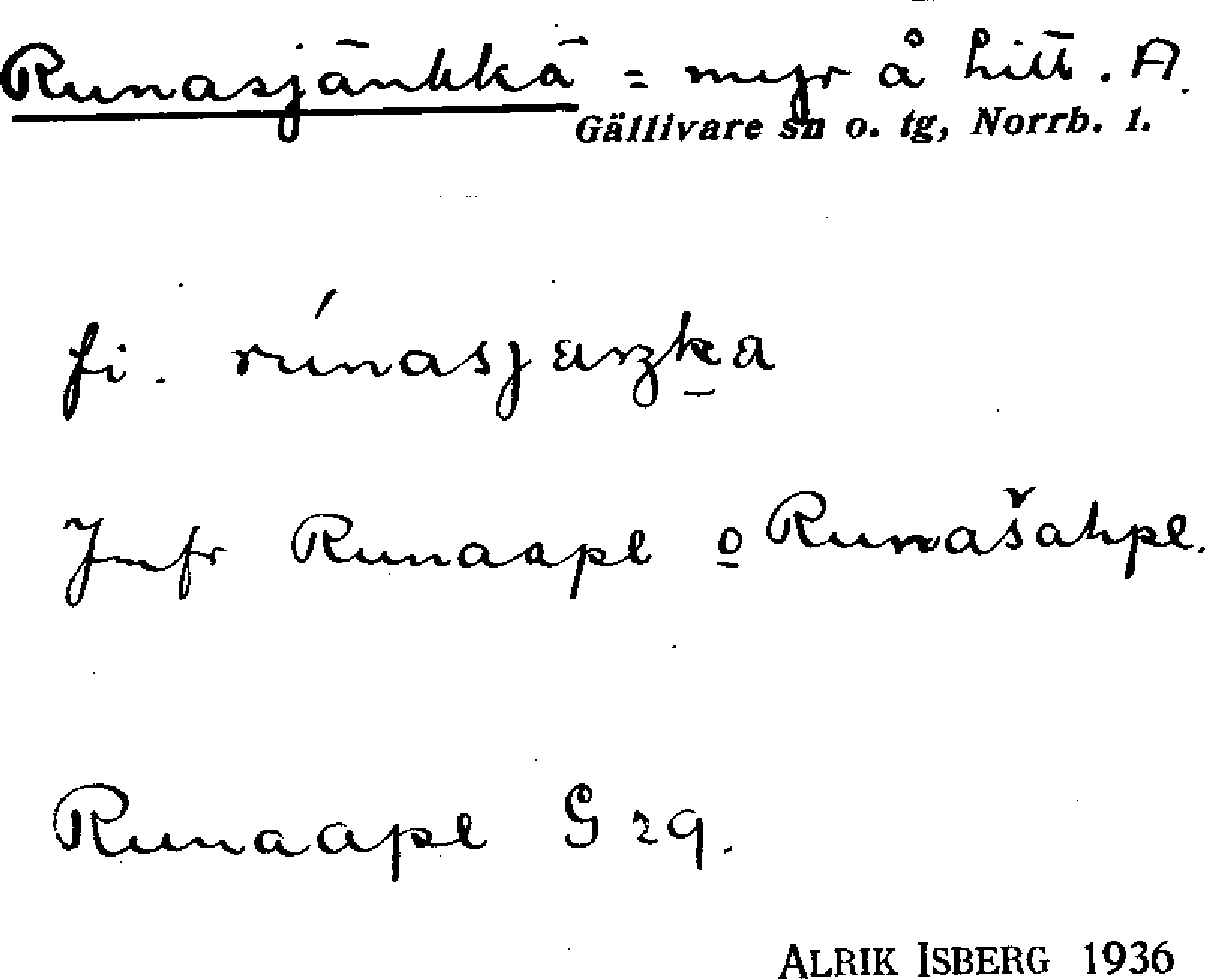 Runasjänkkä = myr å hitt. A.
Gällivare sn o. tg, Norrb. l.
fi. rúnasjæŋka
Jmfr Runaape o Runašahpe.
Runaape G 29.
ALRIK ISBERG 1936